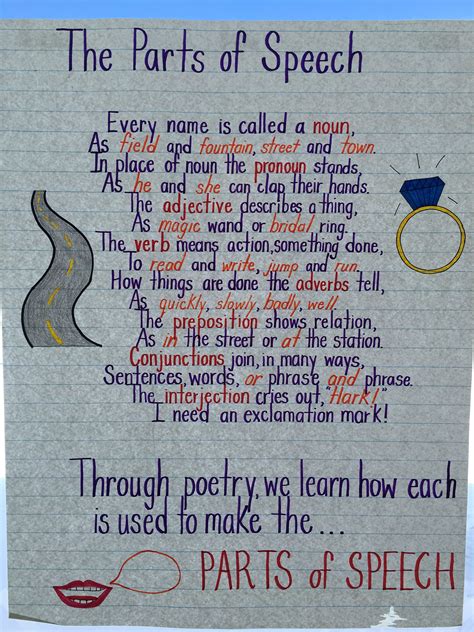 The Parts of Speech
Every name is called a noun,
As field and fountain, street and town.
In place of noun the pronoun stands,
As he and she can clap their hands.
The adjective describes a thing,
As magic wand or bridal ring.
The verb means action, something done,
To read and write, jump and run.
How things are done the adverbs tell,
As quickly, slowly, badly, well.
The preposition shows relation,
As in the street or at the station.
Conjunctions join, in many ways,
Sentences, words, or phrase and phrase.
The interjection cries out, "Hark!"
I need an exclamation mark!
Through poetry, we learn how each
is used to make the...
PARTS of SPEECH